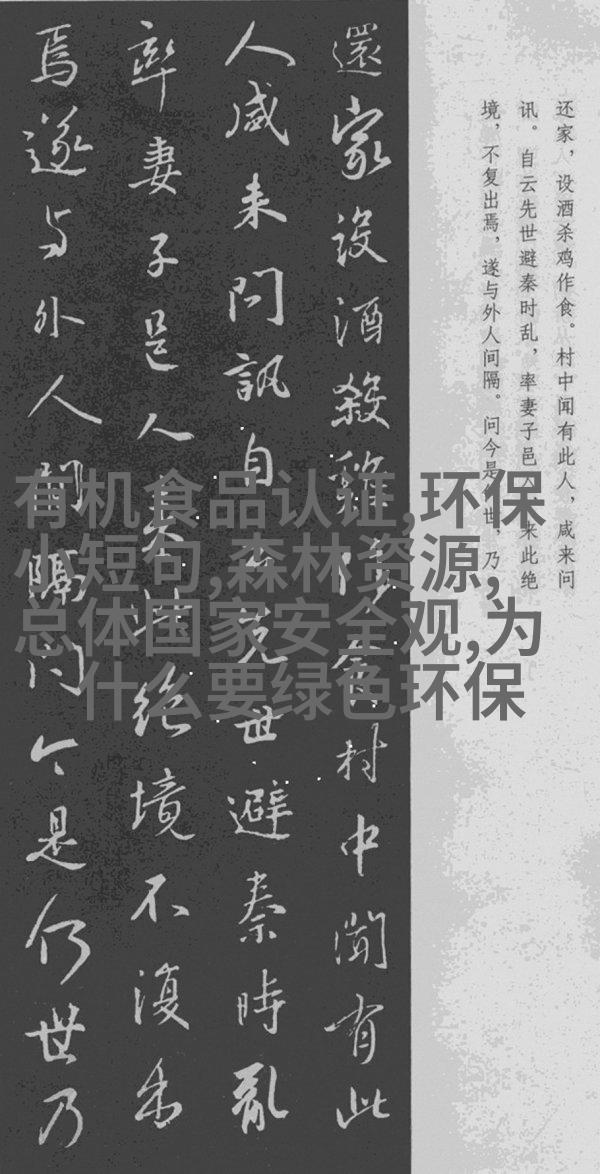 还家，设酒杀鸡作食。村中闻有此人，咸来问
讯。自云先世避秦时乱，率妻子邑人来此绝
境，不复出焉，遂与外人间隔。问今是世，乃
還家設酒殺雞作食村中聞有此
人咸来問訊自云先世避秦時亂
率妻子邑人来此绝境不復出
焉遂与外人间隔问今是何世乃
有机食品认证,环保
小短句,森林资源,
总体国家安全观,为
什么要绿色环保